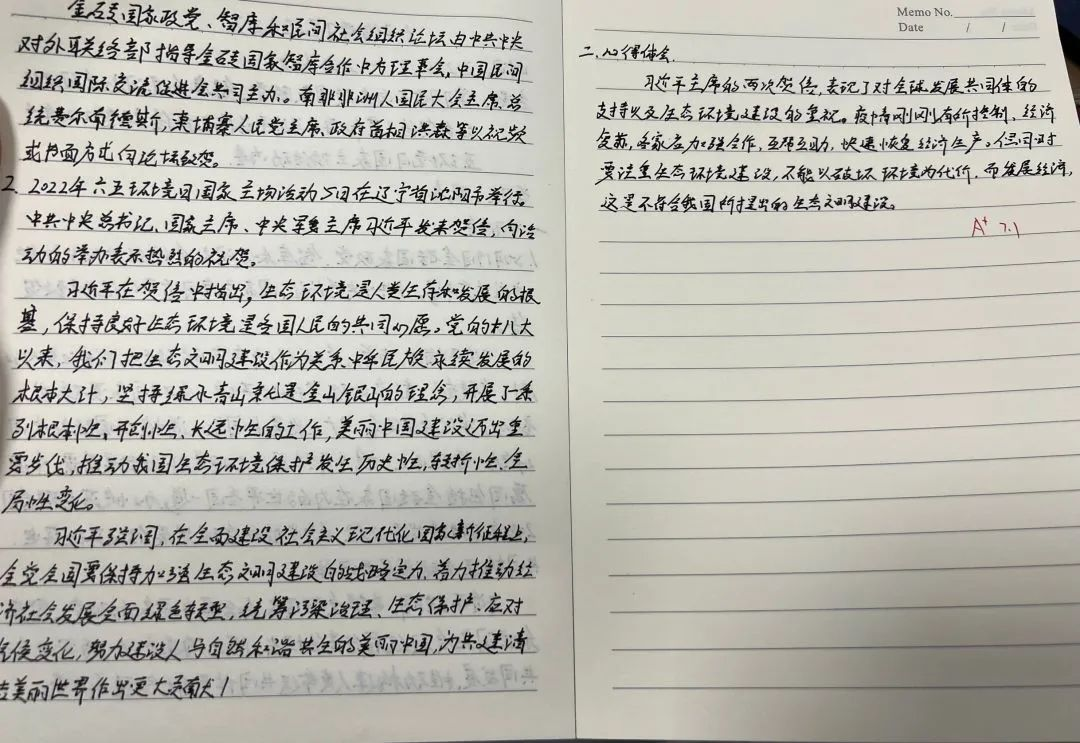 金砖国家政党、智库和民间社会组织论坛由中共中央
对外联络部指导金砖国家智库合作中方理事会,中国民间
组织国际交流促进会共同主办。南非非洲人国民大会主席、总
统费尔南德斯,柬埔寨人民党主席、政府首相洪森等以视频
或书面方式向论坛致贺。
2. 2022年六五环境日国家主场活动5日在辽宁省沈阳市举行。
中共中央总书记、国家主席、中央军委主席习近平发来贺信,向活
动的举办表示热烈的祝贺。
习近平在贺信中指出,生态环境是人类生存和发展的根
基,保持良好生态环境是各国人民的共同心愿。党的十八大
以来,我们把生态文明建设作为关系中华民族永续发展的
根本大计,坚持绿水青山就是金山银山的理念,开展了一系
列根本性、开创性、长远性的工作,美丽中国建设迈出重
要步伐,推动我国生态环境保护发生历史性、转折性、全
局性变化。
习近平强调,在全面建设社会主义现代化国家新征程上,
全党全国要保持加强生态文明建设的战略定力,着力推动经
济社会发展全面绿色转型,统筹污染治理、生态保护、应对
气候变化,努力建设人与自然和谐共生的美丽中国,为共建清
洁美丽世界作出更大贡献!
Memo No.
Date / /
二.心得体会.
习近平主席的两次贺信,表现了对全球发展共同体的
支持以及生态环境建设的重视。疫情刚刚有所控制,经济
复苏,各家应加强合作,互帮互助,快速恢复经济生产。但同时
要注重生态环境建设,不能以破坏环境为代价,而发展经济,
这是不符合我国所提出的生态文明建设。
A+ 7.1